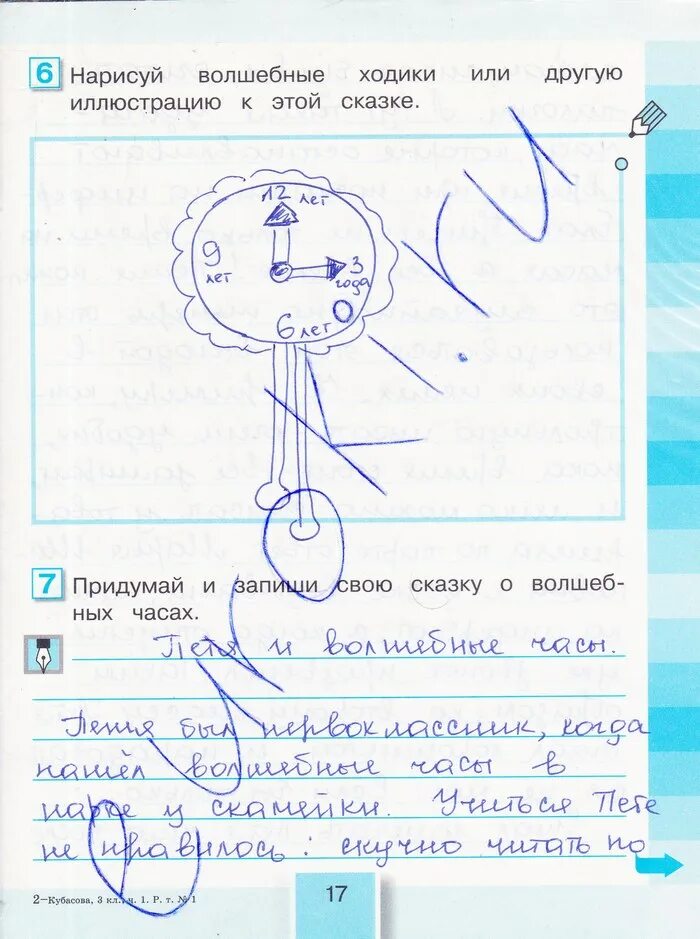 6 Нарисуй волшебные ходики или другую
иллюстрацию к этой сказке.
12 лет
9
лет
3
года
6 лет
7 Придумай и запиши свою сказку о волшеб-
ных часах.
Петя и волшебные часы.
Петя был первоклассник, когда
нашел волшебные часы в
парке у скамейки. Учиться Пете
не нравилось: скучно читать по
2—Кубасова, 3 кл., ч. 1. Р. т. № 1
17